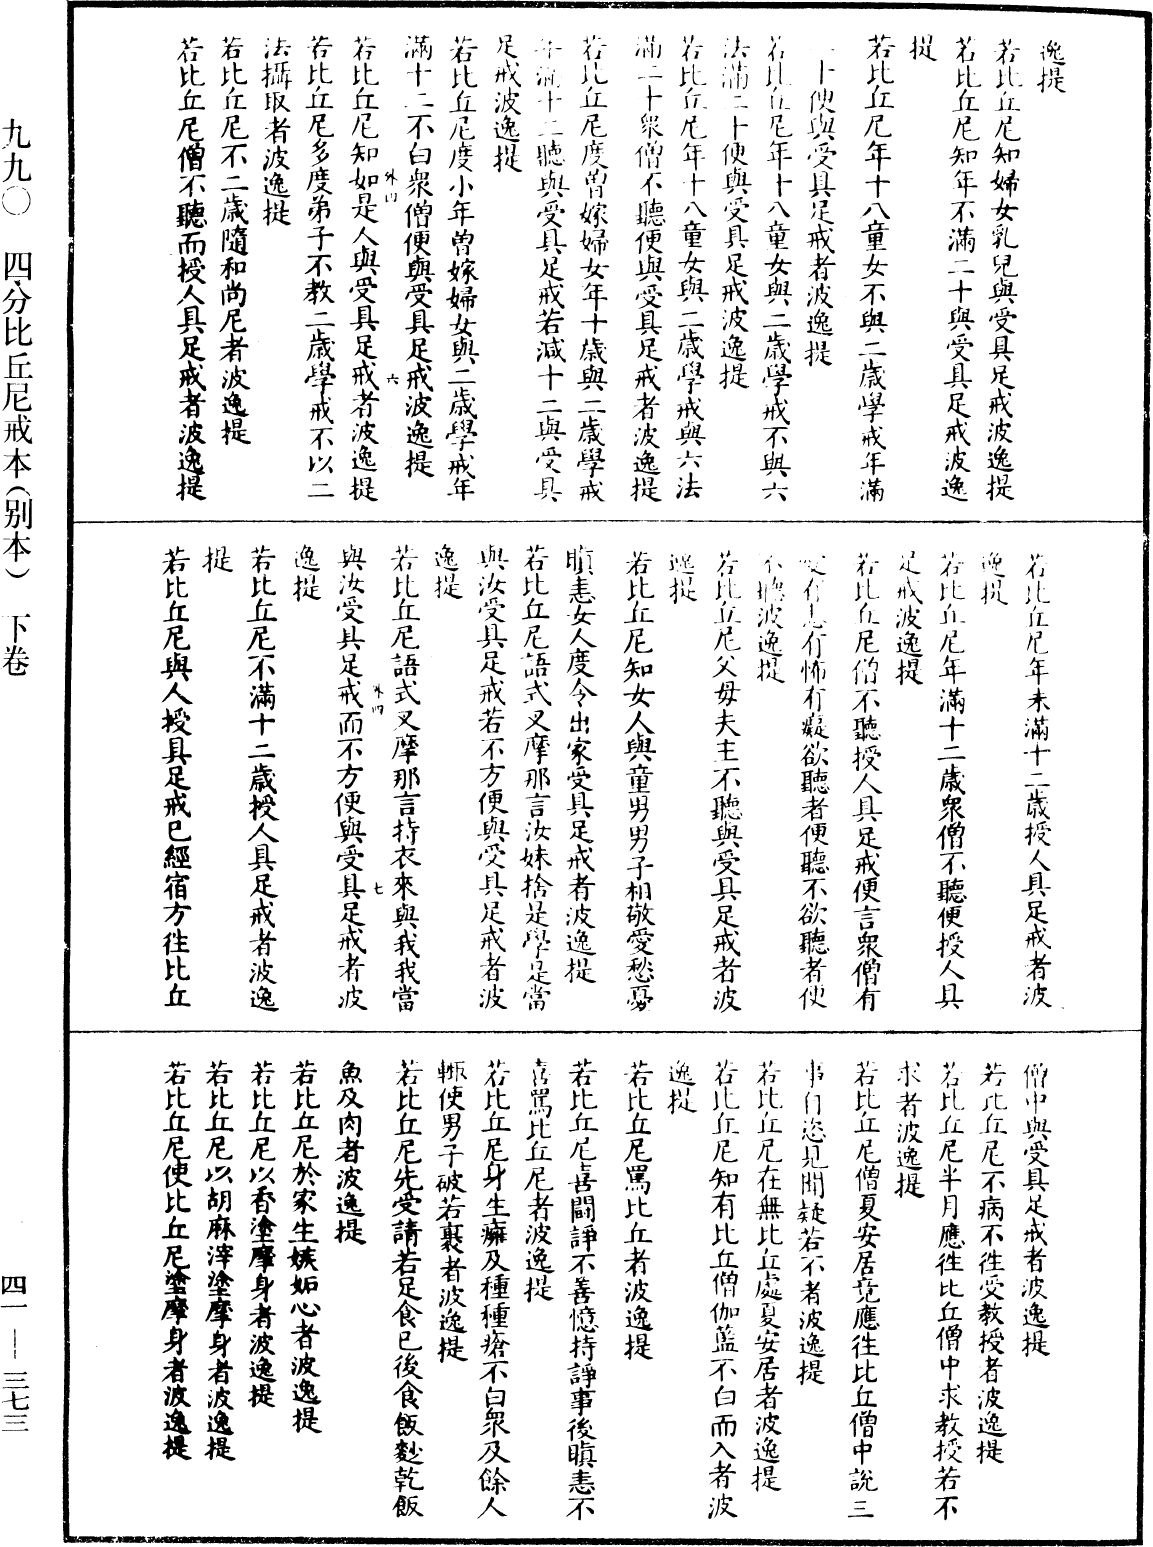 逸提
若比丘尼知婦女乳兒與受具足戒波逸提
若比丘尼知年不滿二十與受具足戒波逸
提
若比丘尼年十八童女不與二歲學戒年滿
二十便與受具足戒者波逸提
若比丘尼年十八童女與二歲學戒不與六
法滿二十便與受具足戒波逸提
若比丘尼年十八童女與二歲學戒與六法
滿二十衆僧不聽便與受具足戒者波逸提
若比丘尼度曾嫁婦女年十歲與二歲學戒
年滿十二聽與受具足戒若減十二與受具
足戒波逸提
若比丘尼度小年曾嫁婦女與二歲學戒年
滿十二不白衆僧便與受具足戒波逸提
若比丘尼知如是人與受具足戒者波逸提
若比丘尼多度弟子不教二歲學戒不以二
法攝取者波逸提
若比丘尼不二歲隨和尚尼者波逸提
若比丘尼僧不聽而授人具足戒者波逸提
外四
六
若比丘尼年未滿十二歲授人具足戒者波
逸提
若比丘尼年滿十二歲衆僧不聽便授人具
足戒波逸提
若比丘尼僧不聽授人具足戒便言衆僧有
愛有恚有怖有癡欲聽者便聽不欲聽者便
不聽波逸提
若比丘尼父母夫主不聽與受具足戒者波
逸提
若比丘尼知女人與童男男子相敬愛愁憂
瞋恚女人度令出家受具足戒者波逸提
若比丘尼語式叉摩那言汝妹捨是學是當
與汝受具足戒若不方便與受具足戒者波
逸提
若比丘尼語式叉摩那言持衣來與我我當
與汝受具足戒而不方便與受具足戒者波
逸提
外四
七
若比丘尼不滿十二歲授人具足戒者波逸
提
若比丘尼與人授具足戒已經宿方往比丘
僧中與受具足戒者波逸提
若比丘尼不病不往受教授者波逸提
若比丘尼半月應往比丘僧中求教授若不
求者波逸提
若比丘尼僧夏安居竟應往比丘僧中說三
事自恣見聞疑若不者波逸提
若比丘尼在無比丘處夏安居者波逸提
若比丘尼知有比丘僧伽藍不白而入者波
逸提
若比丘尼罵比丘者波逸提
若比丘尼喜鬪諍不善憶持諍事後瞋恚不
喜罵比丘尼者波逸提
若比丘尼身生癰及種種瘡不白衆及餘人
輒使男子破若裹者波逸提
若比丘尼先受請若足食已後食飯麨乾飯
魚及肉者波逸提
若比丘尼於家生嫉妬心者波逸提
若比丘尼以香塗摩身者波逸提
若比丘尼以胡麻滓塗摩身者波逸提
若比丘尼使比丘尼塗摩身者波逸提
九九〇　四分比丘尼戒本(别本)　下卷
四一—三七三